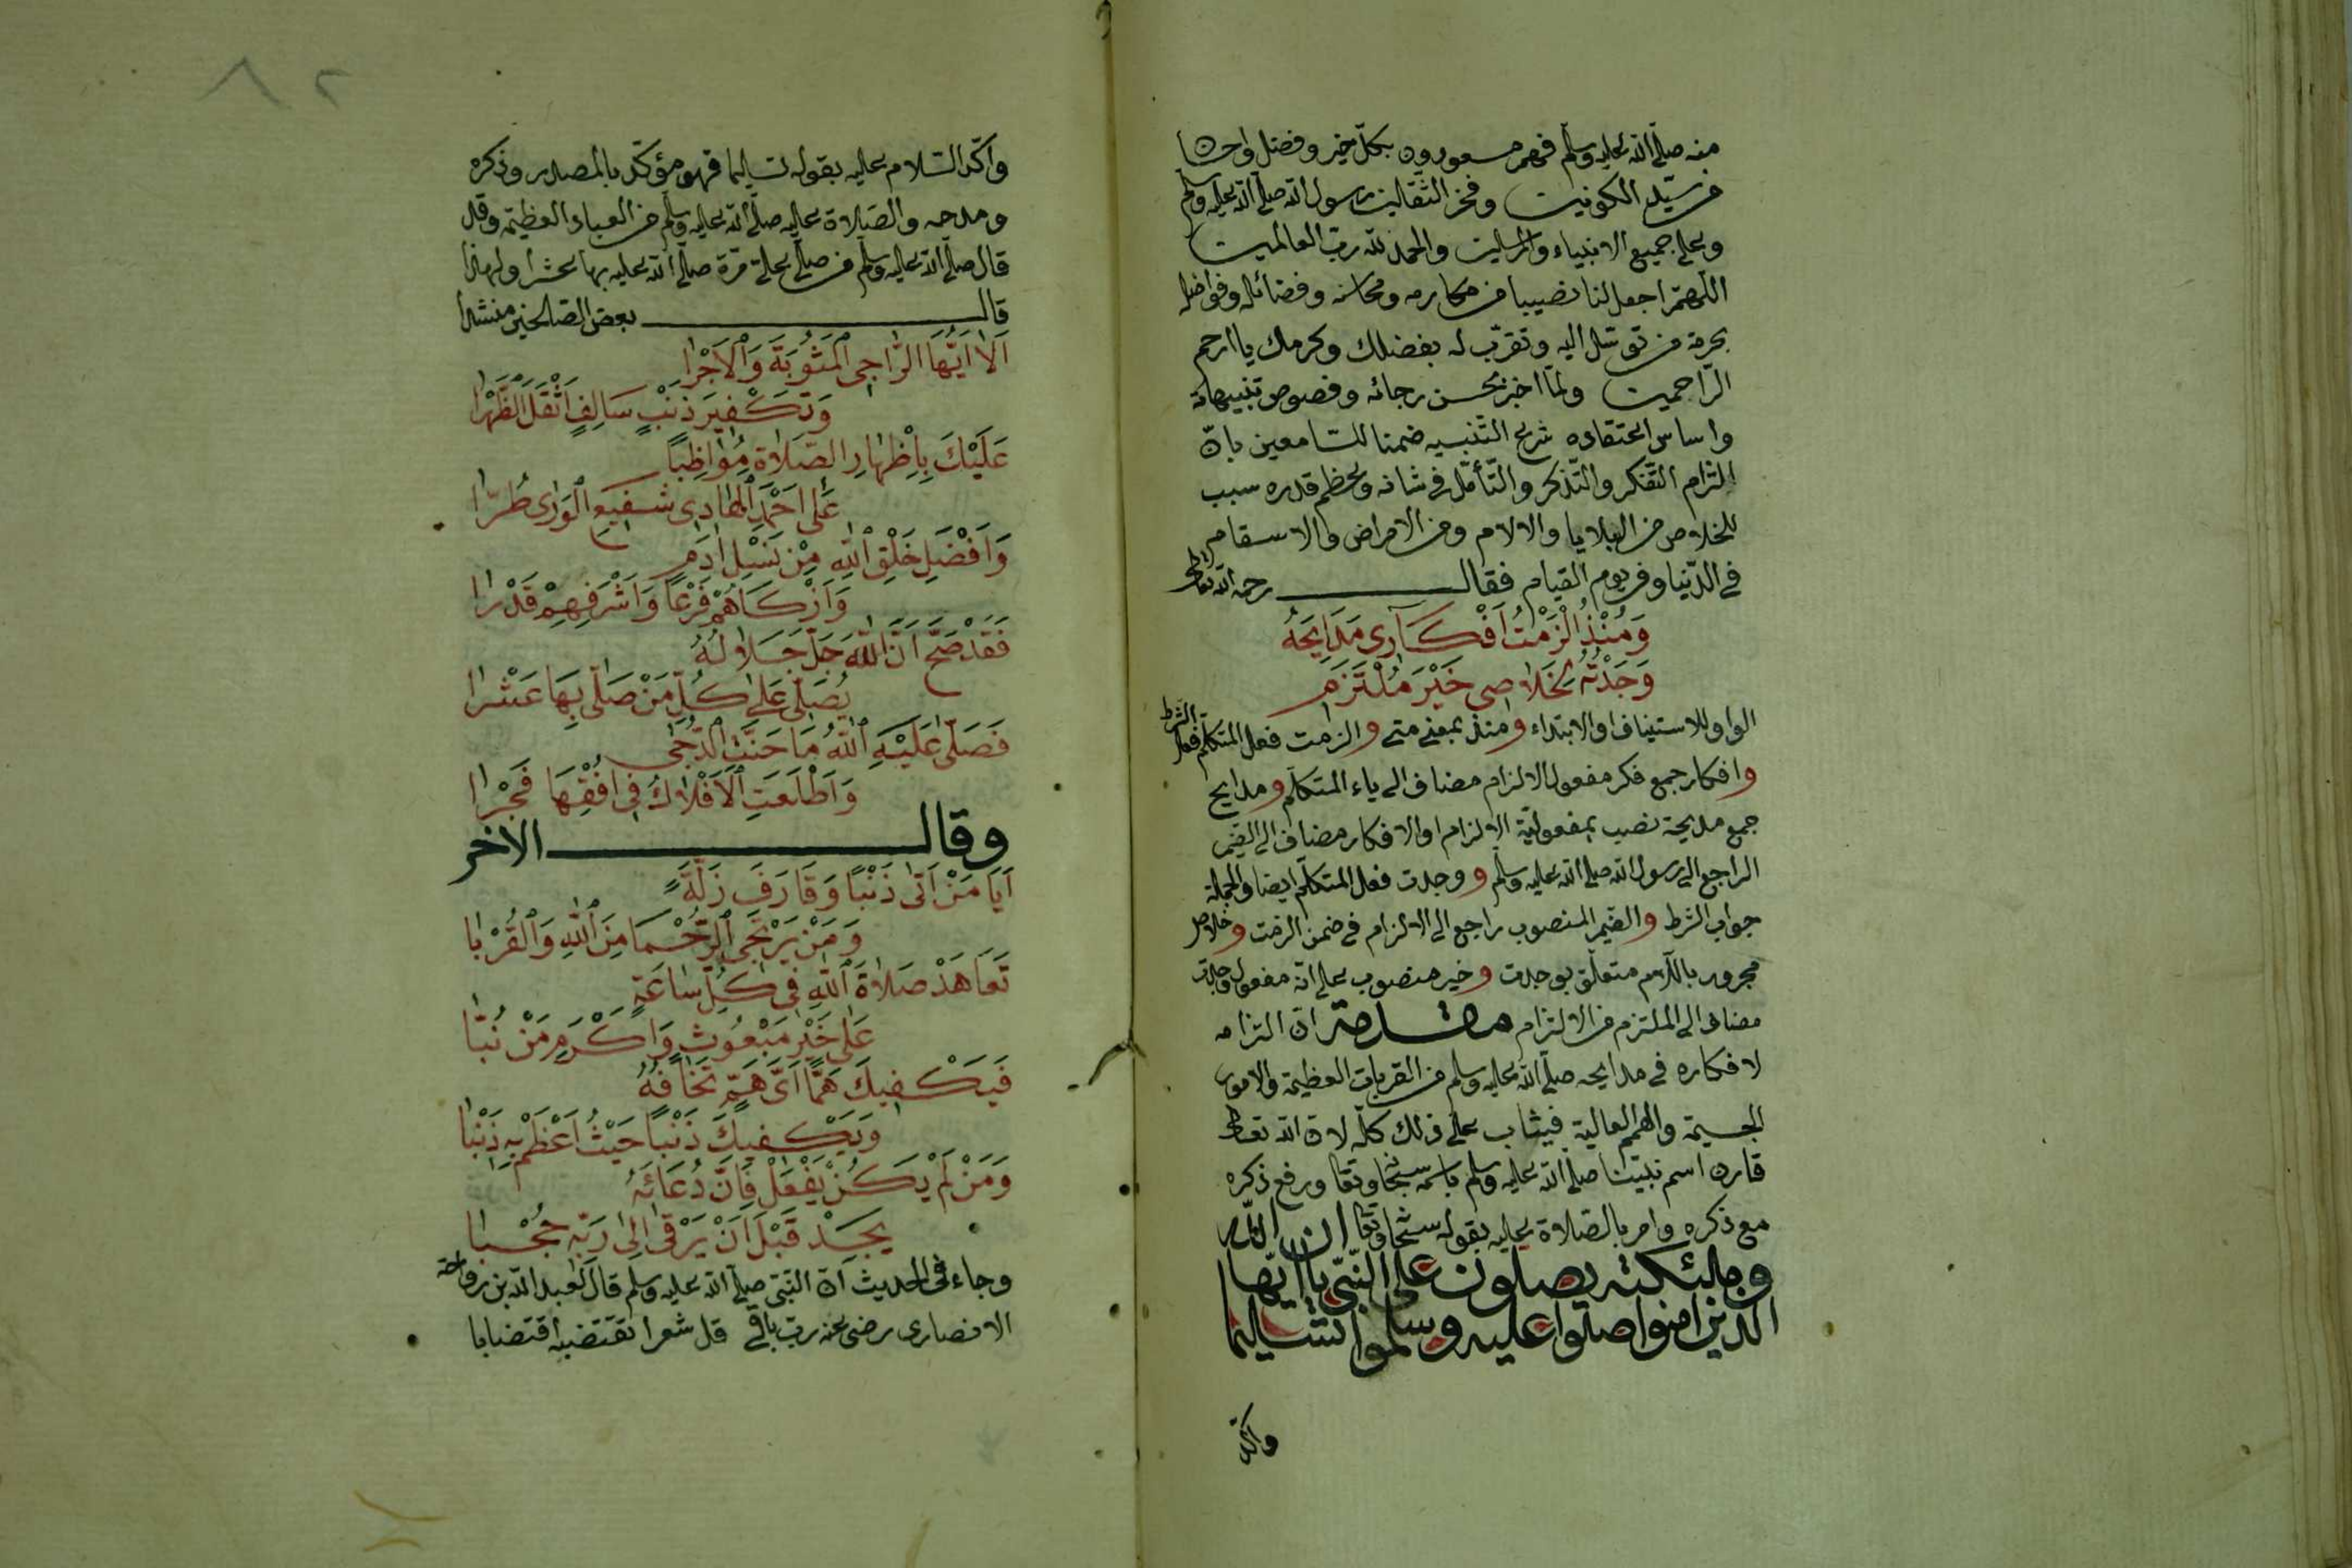 منه صلّى الله عليه وسلم فهم مسعودون بكلّ خير وفضل واحسان
من سيّد الكونين وفخر الثقلين رسول الله صلّى الله عليه وسلم
وعلى جميع الانبياء والمرسلين والحمد لله ربّ العالمين
اللّهمّ اجعل لنا نصيبا من مكارمه ومحاسنه وفضائله وفواضله
بحرمة من توسّل اليه وتقرّب له بفضلك وكرمك يا ارحم
الرّاحمين ولمّا اخبر بحسن رجائه وفصوص تنبيهاته
واساس اعتقاده شرع التنبيه ضمنا للسّامعين بانّ
إلتزام التّفكر والتّذكر والتّأمّل في شانه وعظم قدره سبب
للخلاص من البلايا والالام ومن الامراض والاسقام
في الدّنيا وفي يوم القيام فقال رحمه الله تعالى
وَمُنْذُ أَلْزَمْتُ أَفْكَارِى مَدَايِحَهُ
وَجَدْتُهُ لِخَلَاصِى خَيْرَ مُلْتَزَمِ
الواو للاستيناف او الابتداء ومنذ بمعنى متى والزمت فعل المتكلّم فعل الشرط
وافكار جمع فكر مفعول الالزام مضاف الى ياء المتكلّم ومدايح
جمع مديحة نصب بمفعوليّة الالزام او الافكار مضاف الى الضمير
الراجع الى رسول الله صلّى الله عليه وسلم ووجدت فعل المتكلّم ايضا والجملة
جواب الشرط والضمير المنصوب راجع الى الالزام في ضمن الزمت وخلاص
مجرور باللّام متعلّق بوجدت وخير منصوب على انّه مفعول وجدت
مضاف الى الملتزم من الالتزام مقدمة انّ التزامه
لافكاره في مدايحه صلّى الله عليه وسلم من القربات العظيمة والامور
الجسيمة والهمم العالية فيثاب على ذلك كلّه لانّ الله تعالى
قارن اسم نبيّنا صلّى الله عليه وسلم باسمه سبحانه وتعا ورفع ذكره
مع ذكره وامر بالصّلاة عليه بقوله سبحانه وتعا ان الله
وملئكته يصلون على النّبيّ يا ايّها
الذين امنوا صلّوا عليه وسلّموا تسليما
واكّد
٨٢
واكّد السّلام عليه بقوله تسليما فهو مؤكّد بالمصدر وذكره
ومدحه والصّلاة عليه صلّى الله عليه وسلم من العباد العظيمة وقد
قال صلّى الله عليه وسلم من صلّى علىّ مرّة صلّى الله عليه بها عشرا ولهذا
قال بعض الصّالحين منشدا
اَلَا اَيُّهَا الرَّاجِى الْمَثُوبَةَ وَالْاَجْرَا
وَتَكْفِيرَ ذَنْبٍ سَالِفٍ اَثْقَلَ الظَّهْرَا
عَلَيْكَ بِاِظْهَارِ الصَّلَاةِ مُوَاظِبًا
عَلَى اَحْمَدَ الْهَادِى شَفِيعِ الْوَرَى طُرًّا
وَاَفْضَلِ خَلْقِ اللهِ مِنْ نَسْلِ اٰدَمِ
وَاَزْكَاهُمْ فَرْعًا وَاَشْرَفِهِمْ قَدْرًا
فَقَدْ صَحَّ اَنَّ اللهَ جَلَّ جَلَالُهُ
يُصَلِّى عَلَى كُلِّ مَنْ صَلَّى بِهَا عَشْرَا
فَصَلَّى عَلَيْهِ اللهُ مَا جَنَّتِ الدُّجٰى
وَاَطْلَعَتِ الْاَفْلَاكُ فِى اُفْقِهَا فَجْرَا
وقال الاخر
اَيَا مَنْ اَتَى ذَنْبًا وَقَارَفَ زَلَّةً
وَمَنْ يَرْتَجِى الرُّحْمَا مِنَ اللهِ وَالْقُرْبَا
تَعَاهَدْ صَلَاةَ اللهِ فِى كُلِّ سَاعَةٍ
عَلَى خَيْرِ مَبْعُوثٍ وَاَكْرَمِ مَنْ نُبَّا
فَيَكْفِيكَ هَمًّا اَىَّ هَمٍّ تَخَافُهُ
وَيَكْفِيكَ ذَنْبًا حَيْثُ اَعْظِمْ بِهِ ذَنْبًا
وَمَنْ لَمْ يَكُنْ يَفْعَلْ فَاِنَّ دُعَائَهُ
يَجِدْ قَبْلَ اَنْ يَرْقَى اِلَى رَبِّهِ حُجْبَا
وجاء في الحديث انّ النّبيّ صلّى الله عليه وسلم قال لعبد الله بن رواحة
الانصارى رضى عنه ربّ باقى قل شعرا تقتضبه اقتضابا